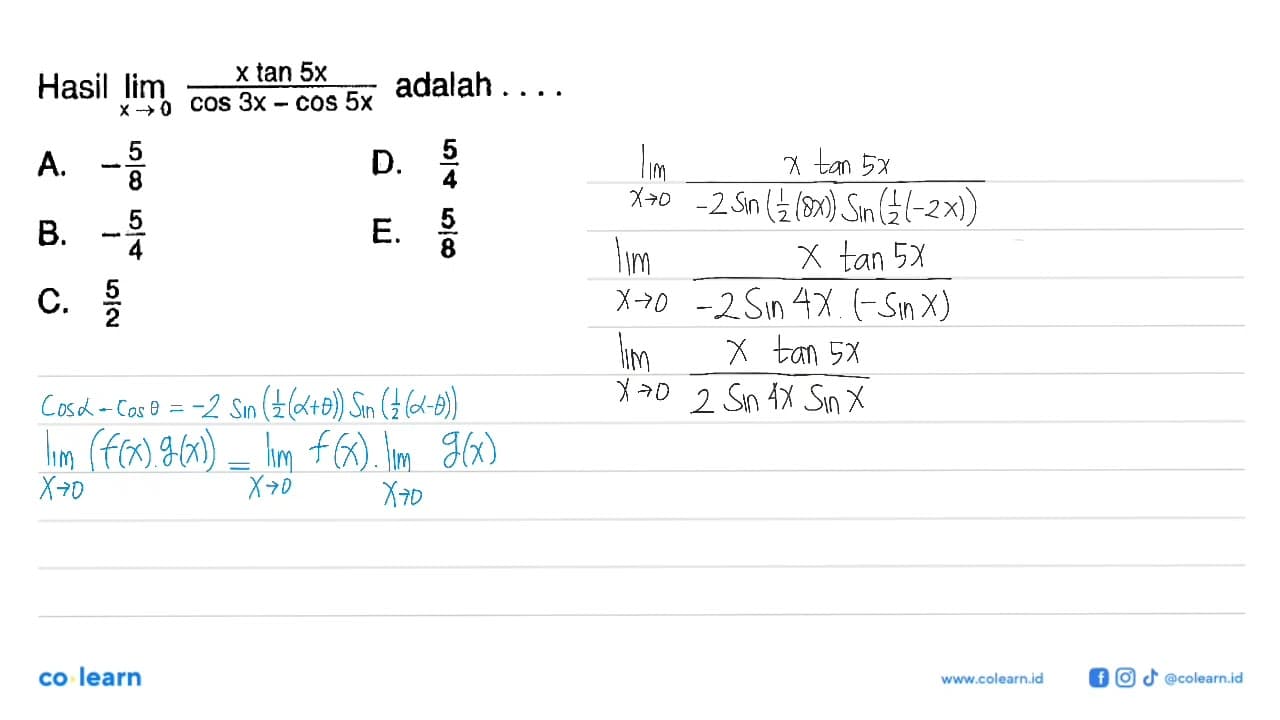 Hasil lim x→0 x tan 5x / cos 3x – cos 5x adalah . . . .
A. –5/8
B. –5/4
C. 5/2
D. 5/4
E. 5/8
lim x→0 x tan 5x / -2 Sin (1/2 (8x)) Sin (1/2 (-2x))
lim x→0 x tan 5x / -2 Sin 4x . (-Sin x)
lim x→0 x tan 5x / 2 Sin 4x Sin x
Cos α - Cos θ = -2 Sin (1/2 (α+θ)) Sin (1/2 (α-θ))
lim x→0 (f(x) . g(x)) = lim x→0 f(x) . lim x→0 g(x)
co learn
www.colearn.id
@colearn.id